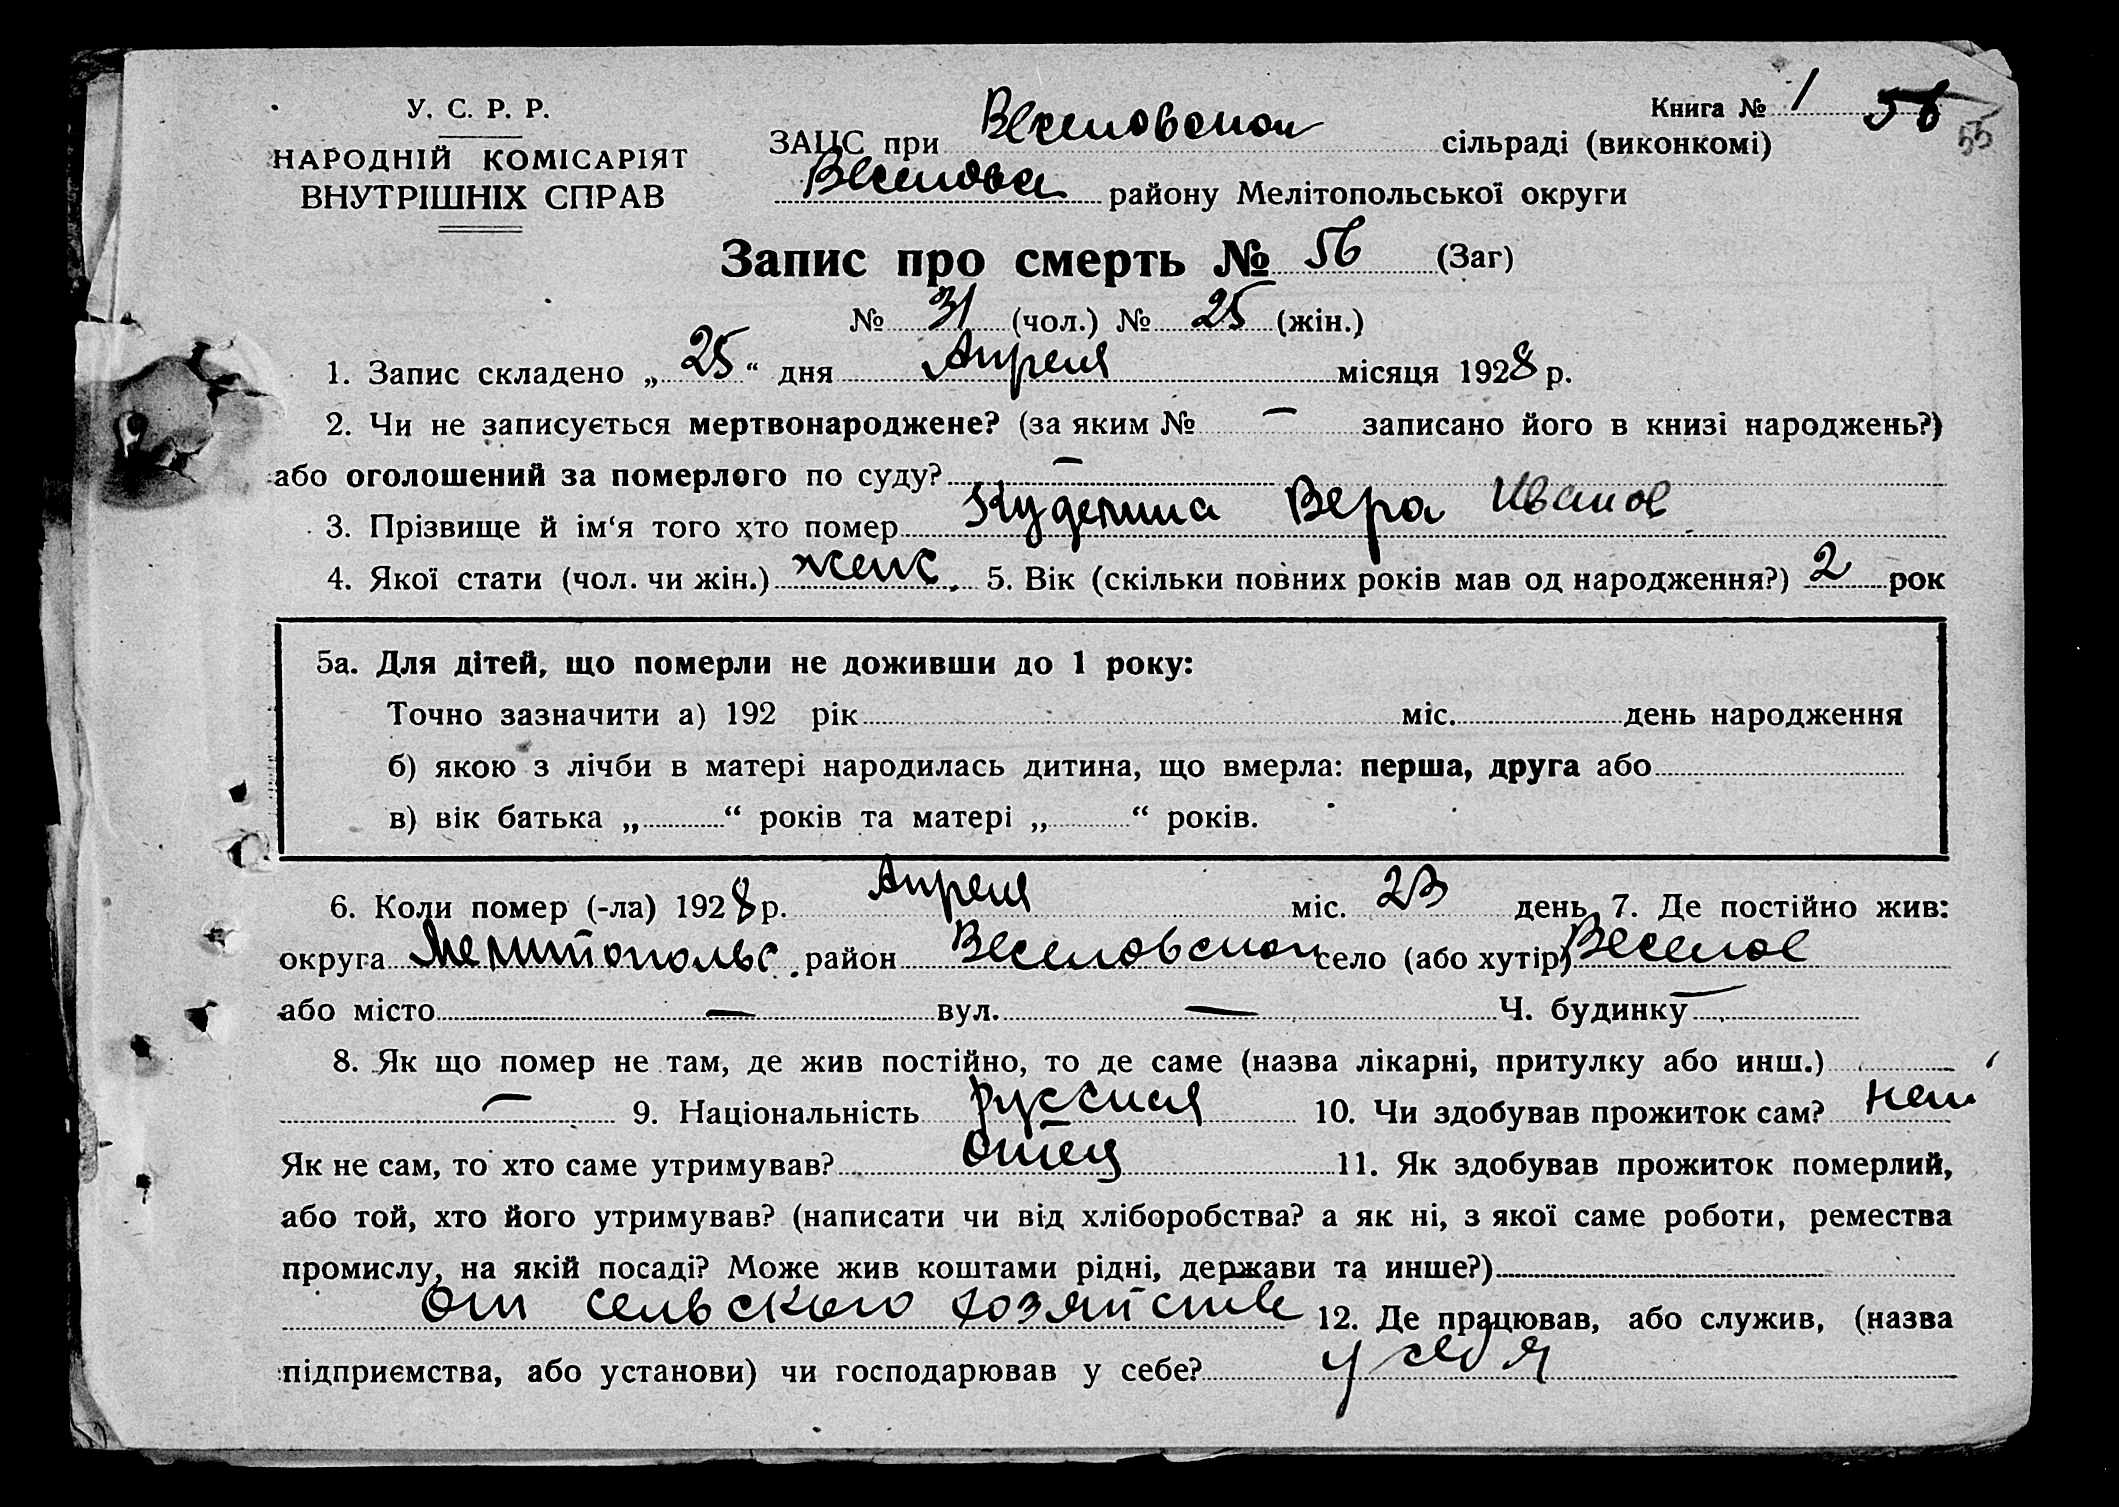 У. С. Р. Р.
НАРОДНІЙ КОМІСАРІЯТ
ВНУТРІШНІХ СПРАВ
Книга № 1 56
55
ЗАЦС при Веселовском сільраді (виконкомі)
району Мелітопольської округи
Запис про смерть № 56 (Заг)
№ 31 (чол.) № 25 (жін.)
1. Запис складено „ 25 “ дня Апреля місяця 1928 р.
2. Чи не записується мертвонароджене? (за яким № — записано його в книзі народжень?)
або оголошений за померлого по суду? —
3. Прізвище й ім‘я того хто помер Вера Иванов
4. Якої стати (чол. чи жін.) женс. 5. Вік (скільки повних років мав од народження?) 2 рок
5а. Для дітей, що померли не доживши до 1 року:
Точно зазначити а) 192 рік міс. день народження
б) якою з лічби в матері народилась дитина, що вмерла: перша, друга або
в) вік батька „ “ років та матері „ “ років.
6. Коли помер (-ла) 1928 р. Апреля міс. 23 день 7. Де постійно жив:
округа Мелитопольс. район Веселовском село (або хутір) Веселое
або місто — вул. — Ч. будинку —
8. Як що помер не там, де жив постійно, то де саме (назва лікарні, притулку або инш.)
— 9. Національність русская 10. Чи здобував прожиток сам? нет
Як не сам, то хто саме утримував? отец 11. Як здобував прожиток померлий,
або той, хто його утримував? (написати чи від хліборобства? а як ні, з якої саме роботи, ремества
промислу, на якій посаді? Може жив коштами рідні, держави та инше?)
от сельского хозяйства 12. Де працював, або служив, (назва
підприємства, або установи) чи господарював у себе? у себя